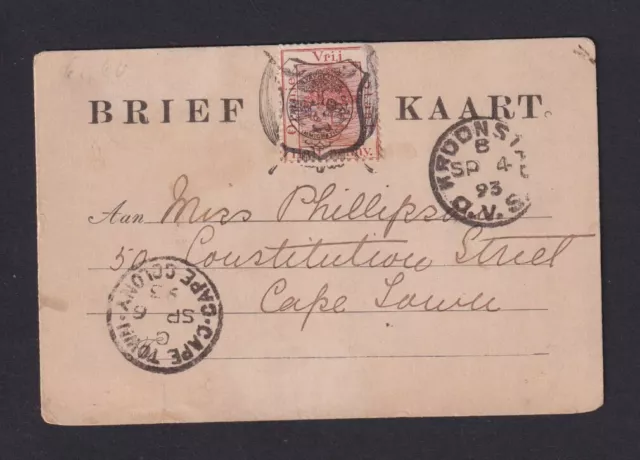 Vrij
BRIEF KAART
KROONSTA
B
SP 4
93
O.V.S.
Aan Miss Phillips
50 Constitution Street
Cape Town
CAPE TOWN. CAPE COLONY
SP